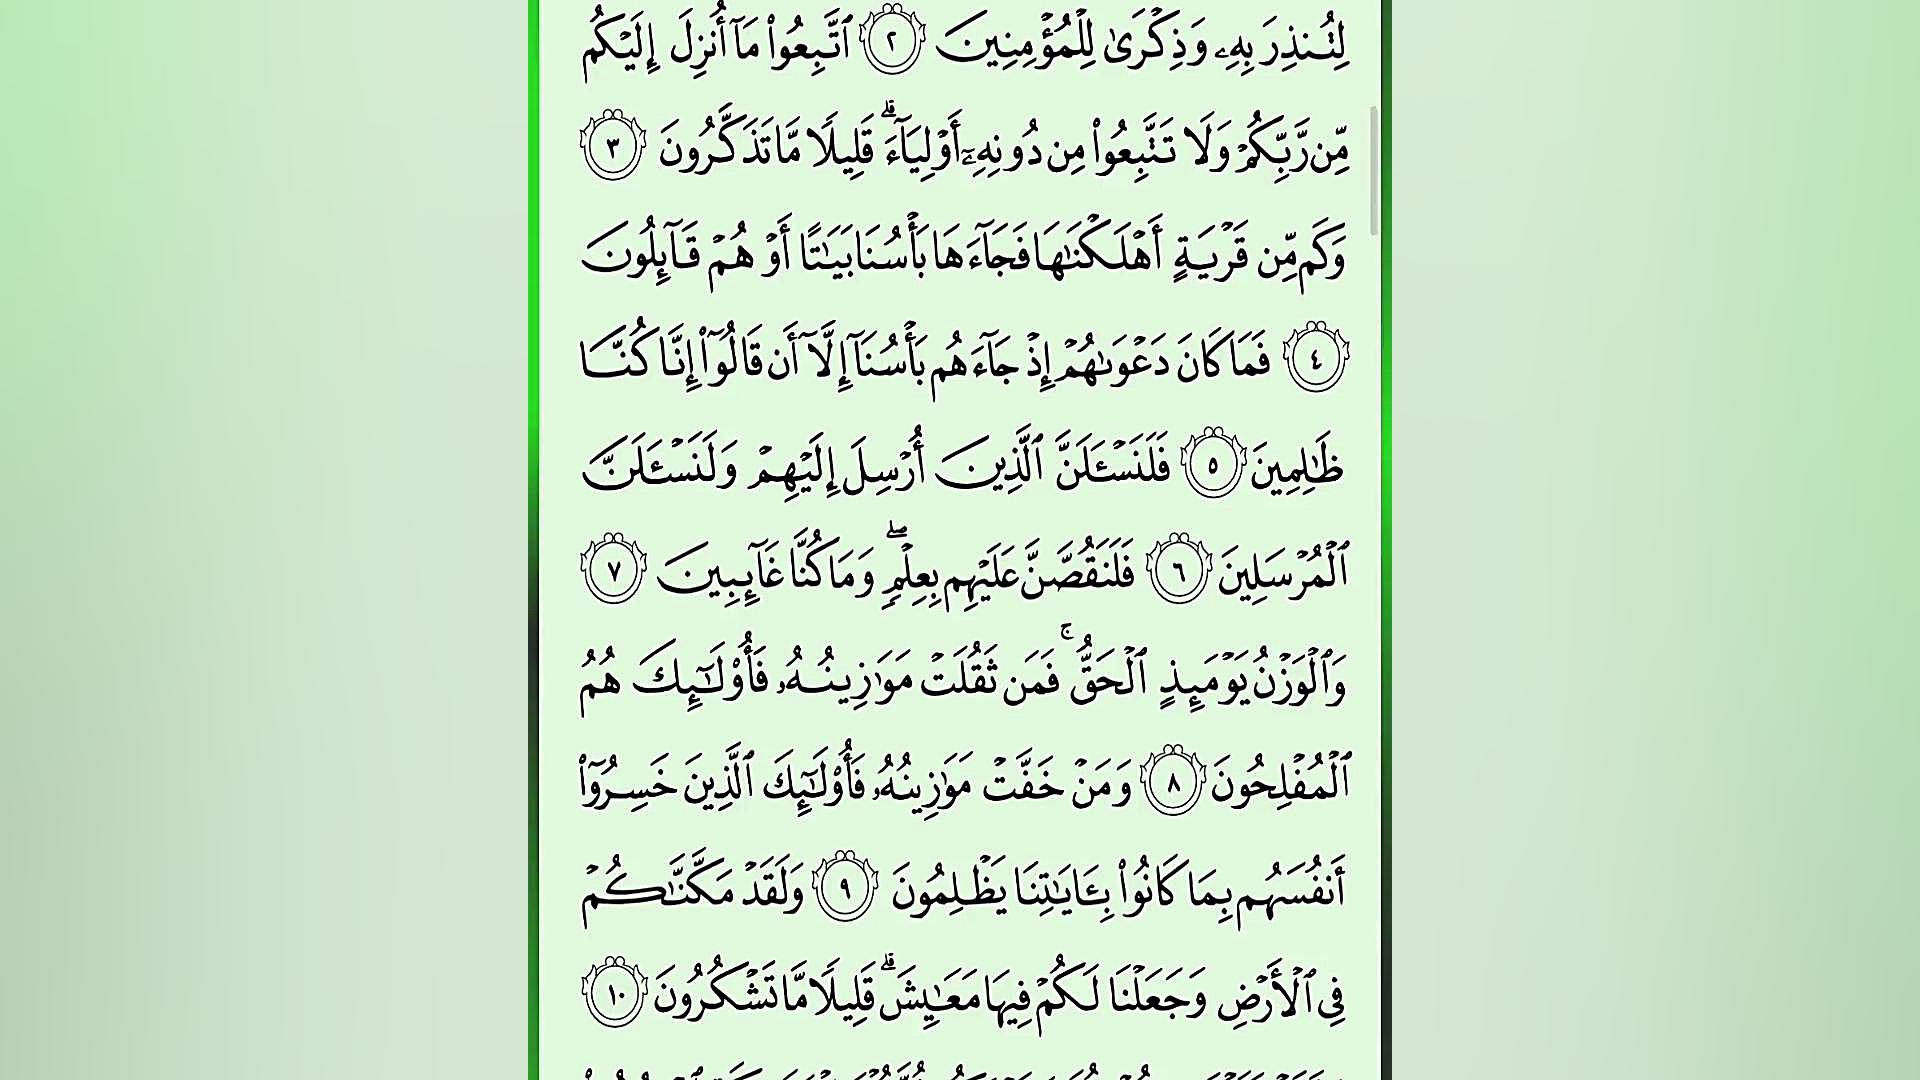 لِتُنذِرَ بِهِۦ وَذِكْرَىٰ لِلْمُؤْمِنِينَ ٢ ٱتَّبِعُوا۟ مَآ أُنزِلَ إِلَيْكُم
مِّن رَّبِّكُمْ وَلَا تَتَّبِعُوا۟ مِن دُونِهِۦٓ أَوْلِيَآءَ ۗ قَلِيلًا مَّا تَذَكَّرُونَ ٣
وَكَم مِّن قَرْيَةٍ أَهْلَكْنَـٰهَا فَجَآءَهَا بَأْسُنَا بَيَـٰتًا أَوْ هُمْ قَآئِلُونَ
٤ فَمَا كَانَ دَعْوَىٰهُمْ إِذْ جَآءَهُم بَأْسُنَآ إِلَّآ أَن قَالُوٓا۟ إِنَّا كُنَّا
ظَـٰلِمِينَ ٥ فَلَنَسْـَٔلَنَّ ٱلَّذِينَ أُرْسِلَ إِلَيْهِمْ وَلَنَسْـَٔلَنَّ
ٱلْمُرْسَلِينَ ٦ فَلَنَقُصَّنَّ عَلَيْهِم بِعِلْمٍ ۖ وَمَا كُنَّا غَآئِبِينَ ٧
وَٱلْوَزْنُ يَوْمَئِذٍ ٱلْحَقُّ ۚ فَمَن ثَقُلَتْ مَوَٰزِينُهُۥ فَأُو۟لَـٰٓئِكَ هُمُ
ٱلْمُفْلِحُونَ ٨ وَمَنْ خَفَّتْ مَوَٰزِينُهُۥ فَأُو۟لَـٰٓئِكَ ٱلَّذِينَ خَسِرُوٓا۟
أَنفُسَهُم بِمَا كَانُوا۟ بِـَٔايَـٰتِنَا يَظْلِمُونَ ٩ وَلَقَدْ مَكَّنَّـٰكُمْ
فِى ٱلْأَرْضِ وَجَعَلْنَا لَكُمْ فِيهَا مَعَـٰيِشَ ۗ قَلِيلًا مَّا تَشْكُرُونَ ١٠